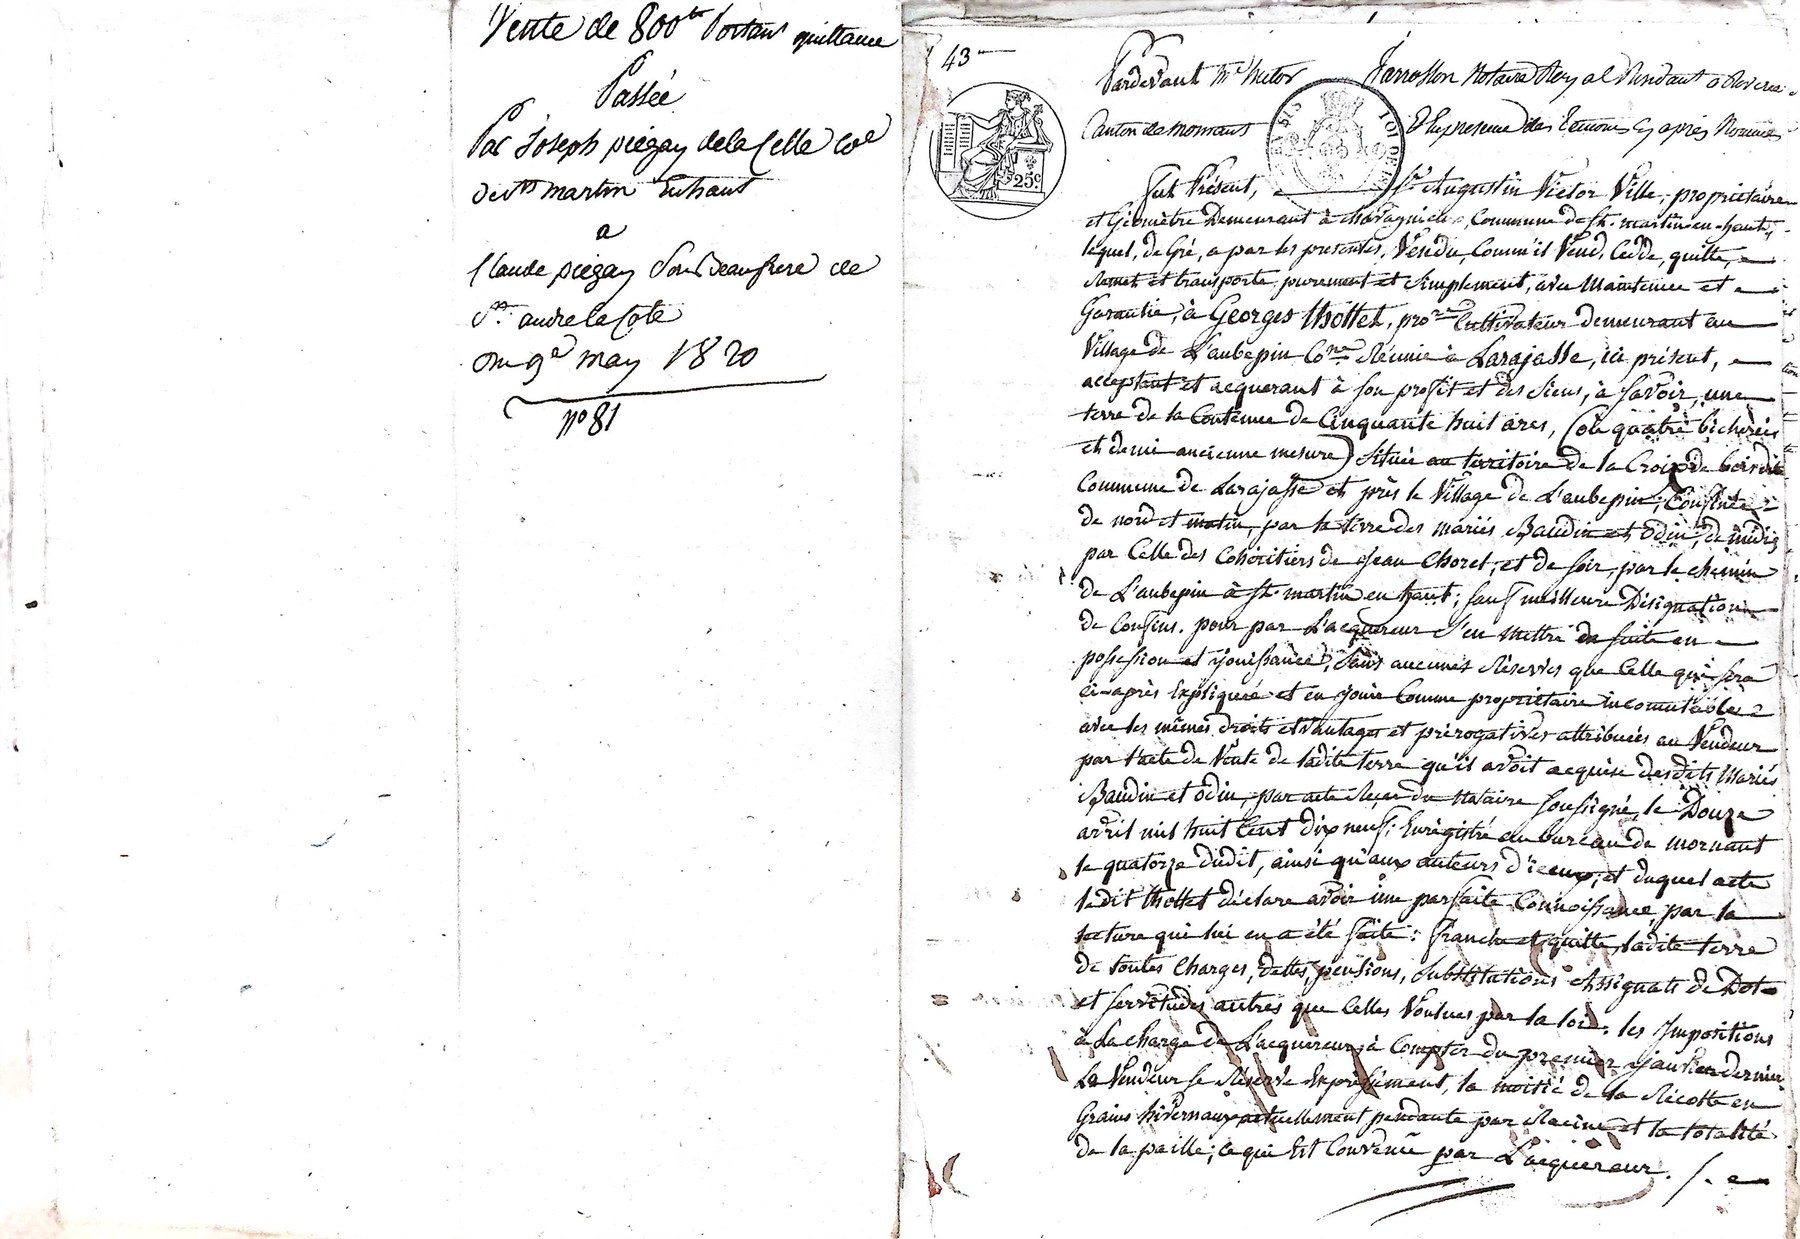 Vente de 800tt Portant quittance
Passée
Par Joseph piégay de la Celle coe
de st martin Enhaut
a
Claude piégay Son Beaufrere de
St. andre la Cote
Du 9e may 1820
no 81
43
Pardevant Me Victor notaire Royal Résidant a
Canton de mornant Et En presence des Temoins Cy après Nommés
25c
Fut Présent, Sr. Augustin Victor Ville, propriétaire
et Géomètre Demeurant à Commune de St. martin-en-haut,
lequel, de Gré, a par les présentes, Vendu, Comm'il Vend, Cedde, quitte,
Remet et transporte, purement et simplement, avec Maintenue et
Garantie, à Georges Thollet, pro.re Cultivateur demeurant au
Village de L'aubepin Co.ne Réunie à Larajasse, ici présent,
acceptant et acquerant à son profit et des Siens, à Savoir, une
terre de la Contenue de Cinquante huit ares, (ou quatre bicherées
et demie ancienne mesure) Située au territoire de la Croix de bois dite
Commune de Larajasse et près le Village de L'aubepin; Confinée
de nord et matin, par la terre des mariés Baudin et Odin; de midi,
par Celle des Cohéritiers de Jean Chorel, et de soir, par le chemin
de L'aubepin à St. martin en haut; sauf meilleure Désignation
de Confins. pour par L'acquereur s'en mettre de suite en
possession et jouissance, Sans aucunes Réserves que Celle qui sera
ci-après Expliquée et en jouir Comme propriétaire incomutable
avec les mêmes droits et Vantages et prérogatives attribuées au Vendeur
par l'acte de Vente de ladite terre qu'il avoit acquise desdits Mariés
Baudin et Odin, par acte Reçu du Notaire soussigné, le Douze
avril mil huit Cent dix neuf; Enregistré au bureau de mornant
le quatorze dudit, ainsi qu'aux auteurs d'iceux; et duquel acte
ledit Thollet déclare avoir une parfaite Connoissance, par la
lecture qui lui en a été faite: franche et quitte, ladite terre
de toutes Charges, dettes, pensions, Substitutions Assignats de Dot
et servitudes autres que Celles Voulues par la loi. les Impositions
à La charge de L'acquereur à Compter du premier janvier dernier
Le Vendeur se Réserve Expressement, la moitié de la Récolte en
Grains hivernaux actuellement pendante par Racine et la totalité
de la paille; ce qui Est Convenu par L'acquereur.